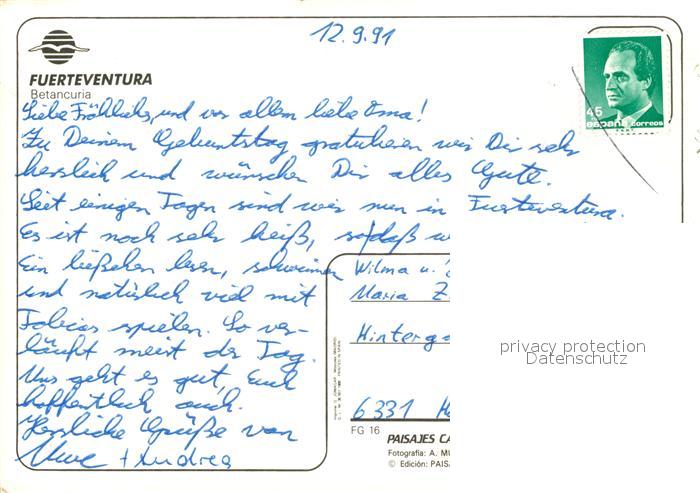 12.9.91
FUERTEVENTURA
Betancuria
45
españa correos
Liebe Fröhlichs, und vor allem liebe Oma!
Zu Deinem Geburtstag gratulieren wir Dir sehr
herzlich und wünschen Dir alles Gute.
Seit einigen Tagen sind wir nun in Fuerteventura.
Es ist noch sehr heiß, sodaß w
Ein bißchen lesen, schwimmen
und natürlich viel mit
Tobias spielen. So ver-
läuft meist der Tag.
Uns geht es gut, Euch
hoffentlich auch.
Herzliche Grüße von
Uwe + Andrea
Wilma u.
Maria Z
Hinterga
6331 H
privacy protection
Datenschutz
FG 16
PAISAJES CA
Fotografía: A. MU
© Edición: PAISA